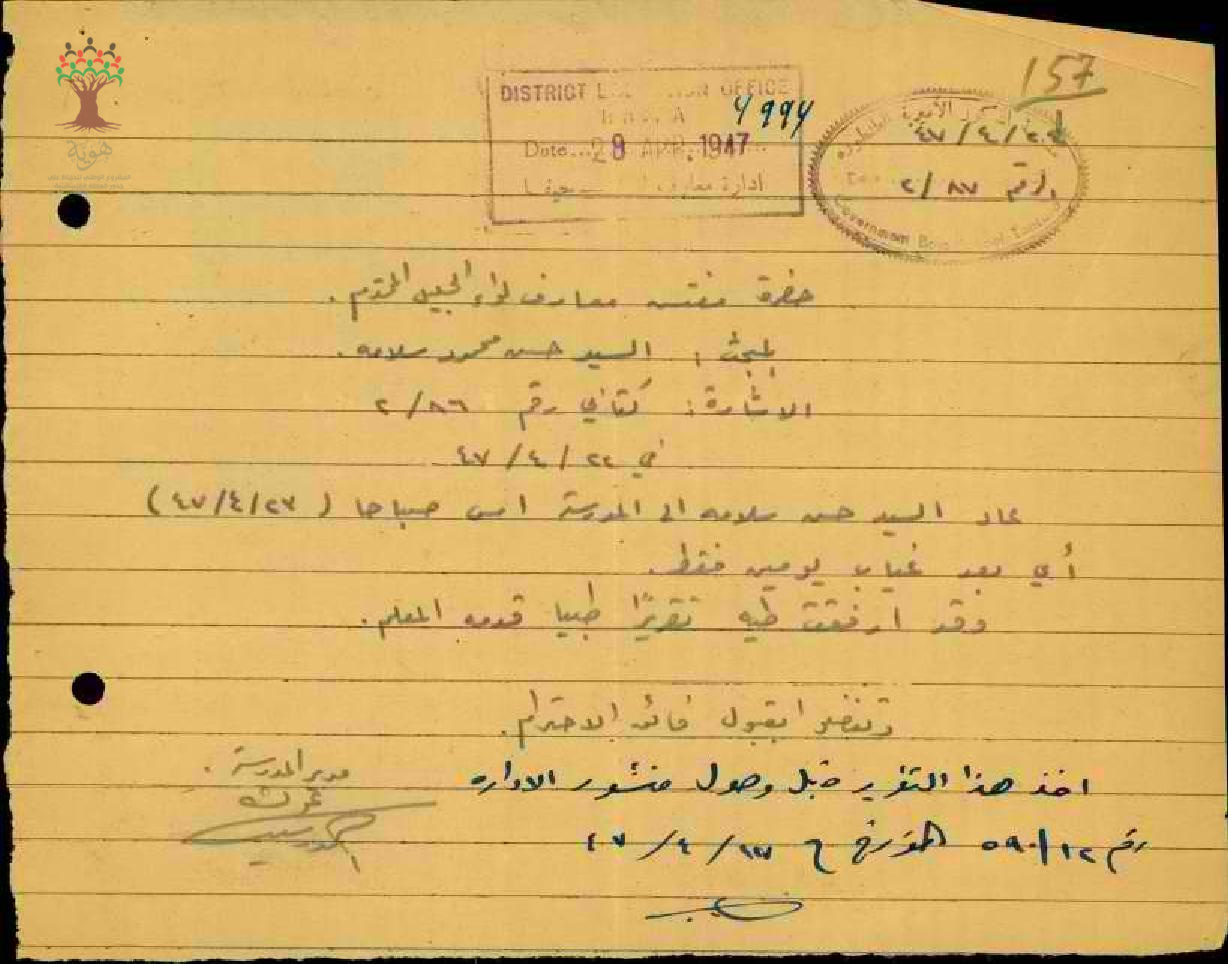 157
DISTRICT OFFICE
4994
Date 28 APR. 1947
ادارة معارف حيفا
٤٧/٤/٢٤
الرقم ٢/٨٧
Government Boys School
هوية
حضرة مفتش معارف لواء الجليل المحترم.
المبحث: السيد حسن محمود سلامه.
الاشارة: كتابي رقم ٢/٨٦
في ٤٧/٤/٢٢
عاد السيد حسن سلامه الى المدرسة امس صباحا (٤٧/٤/٢٣)
أي بعد غياب يومين فقط.
وقد ارفقت طيه تقريرًا طبيا قدمه المعلم.
وتفضلوا بقبول فائق الاحترام.
مدير المدرسة.
اخذ هذا التقرير قبل وصول منشور الاداره
رقم ٥٩٠/١٢ المؤرخ ٤٧/٤/١٧